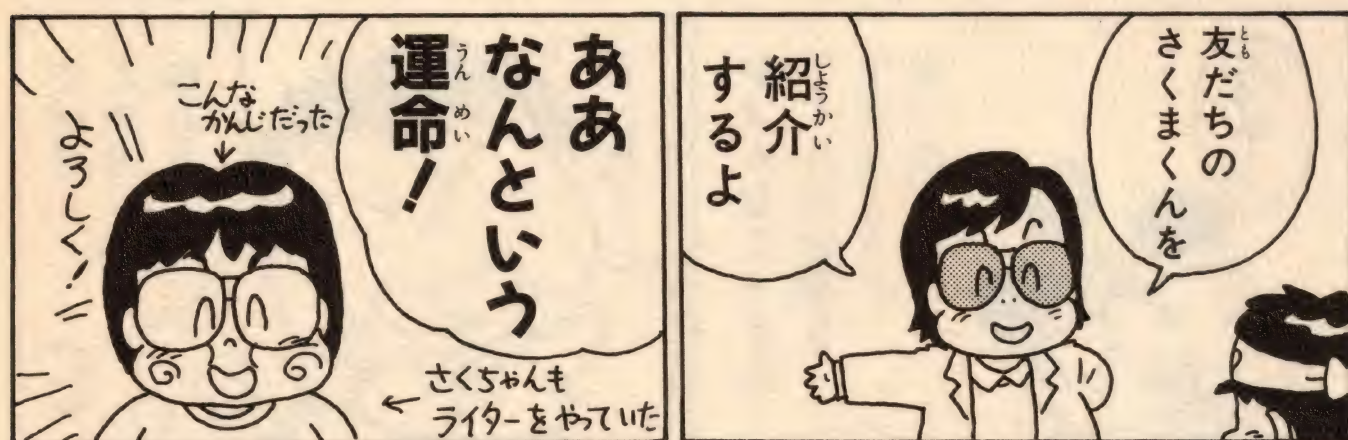 友だちの
さくまくんを
紹介
するよ
ああ
なんという
運命！
こんな
かんじだった
↓
よろしく！
さくちゃんも
← ライターをやっていた
とも
しようかい
うんめい